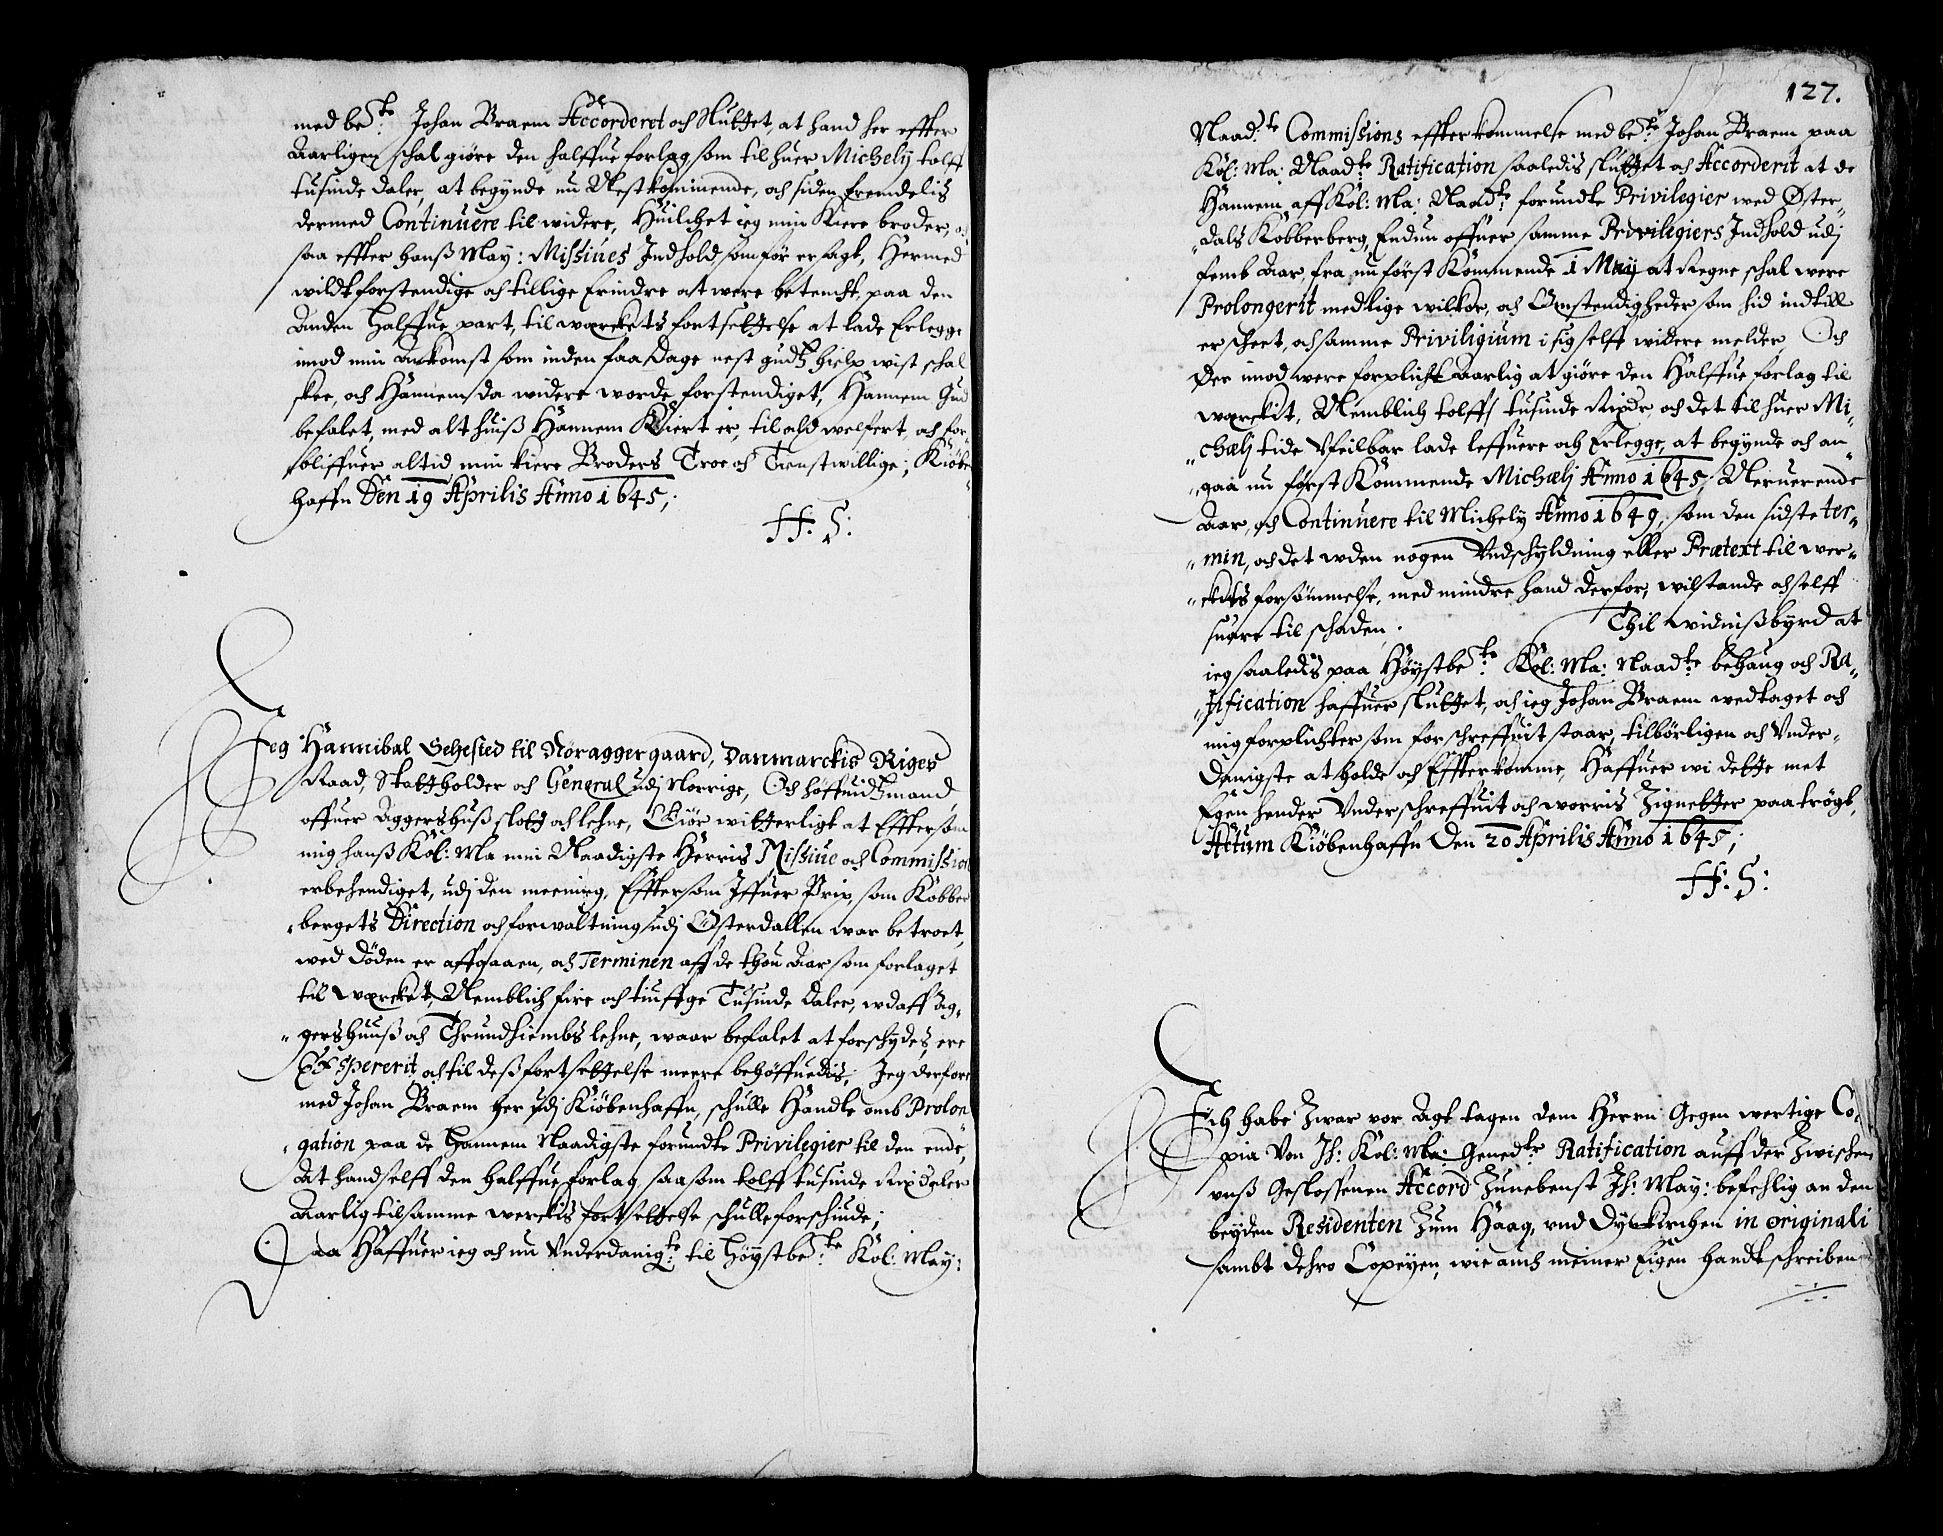 med be^te: Johan Braem Accorderet och Sluttet, at hand her effter
Aarligen schal giøre den halffue forlag som til huer Michely tolff
tusinde daler, at begynde nu Nestkommende, och siden fremdelis
dermed Continuere til widere, Huilchet ieg min Kiere broder,
saa effter hanß May: Missiues Indhold som før er sagt, Hermed
wildt forstendige och tillige Erindre at were betencht, paa den
Anden halffue part, til werckets fortsettelse at lade Erlegge
imod min Ankomst som inden faa dage nest gudtz hielp wist schal
skee, och Hannem da widere worde forstendiget, Hannem Gud
befalet, med alt huiß Hannem Kiert er, til ald welfert, och for
bliffuer altid min kiere Broders Troe och Tienstwillige; Kiøbe
haffn Den 19 Aprilis Anno 1645;
H: S:
Jeg Hannibal Sehested til Nøraggergaard, Danmarckis Riges
Raad, Statholder och General udj Norrige, Och høffuidtzmand
offuer Aggershuß slott och lehne, Giør witterligt at Effter som
mig hanß Kol: Ma min Naadigste Herris Missiue och Commission
erbehendiget, udj den meening, Effter som Iffuer Prip, som Kobber
bergets Direction och forwaltning udj Østerdallen war betroet,
wed døden er affgaaen, och Terminen aff de thou Aar som forlaget
til wercket, Nemblich fire och tiuffge Tusinde daler, udaff Ag„
„gershuuß och Thrundhiembs lehne, waar befalet at forschydes, ere
Exspererit, och til deß fortsettelse meere behøffuedis, Jeg derfore
med Johan Braem her udj Kiøbenhaffn, schulle Handle omb Prolon
„gation paa de Hannem Naadigste forundte Privilegier til den ende,
At hand selff den halffue forlag, saasom tolff tusinde Rixdaler
Aarlig til samme werckis fortsettelse schulle forschiude;
Daa Haffuer ieg och nu Underdanig^te: til Høystbe^te: Kol: May:
127.
Naad^te: Commissions effterkommelse med be^te: Johan Braem paa
Kol: Ma: Naad^te: Ratification saaledis sluttet och Accorderit at de
Hannem aff Kol: Ma: Naad^te: forundte Privilegier wed Øster„
„dals Kobberberg, Endnu offuer samme Privilegiers Indhold udj
femb Aar, fra nu først Kommende 1 May at Regne schal were
Prolongerit med lige wilkor, och Omstendigheder som hid indtill
er scheet, och samme Priviligium i sig selff widere melder, Och
der imod were forplicht Aarlig at giøre den Halffue forlag til
werckit, Nemblich tolff tusinde Rixdr och det til huer Mi„
„chælj tide Ufeilbar lade leffuere och Erlegge, at begynde och an„
„gaa nu først Kommende Michælj Anno 1645, Neruerende
Aar, och Continuere til Michely Anno 1649, som den sidste ter„
„min, och det uden nogen Undschyldning eller Prætext til wer„
„ckets forsømmelse, med mindre hand derfor, wil stande och selff
suare til schaden. Thil widnißbyrd at
ieg saaledis paa Høystbe^te: Kol: Ma: Naad^te: behaug och Ra„
„tification haffuer sluttet, och ieg Johan Braem wedtaget och
mig forplichter som forschreffuit staar, tilbørligen och Under„
danigste at holde och Effterkomme, Haffuer wi dette met
Egen hender Underschreffuit och worris Zignetter paatrøgt,
Actum Kiøbenhaffn Den 20 Aprilis Anno 1645;
H: S:
Ich habe Zwar vor Agt tagen dem Herrn Gegenwertige Co„
pia Von Ih: Kol: Ma: Gened^te: Ratification auff der Zwischen
unß Geslossenen Accord Zunebenst Ih: May: befehlig an den
beyden Residenten Zum Haag, und Dynkirchen in originali
sambt dehro Copeyen, wie auch meiner Eigen handtschreiben